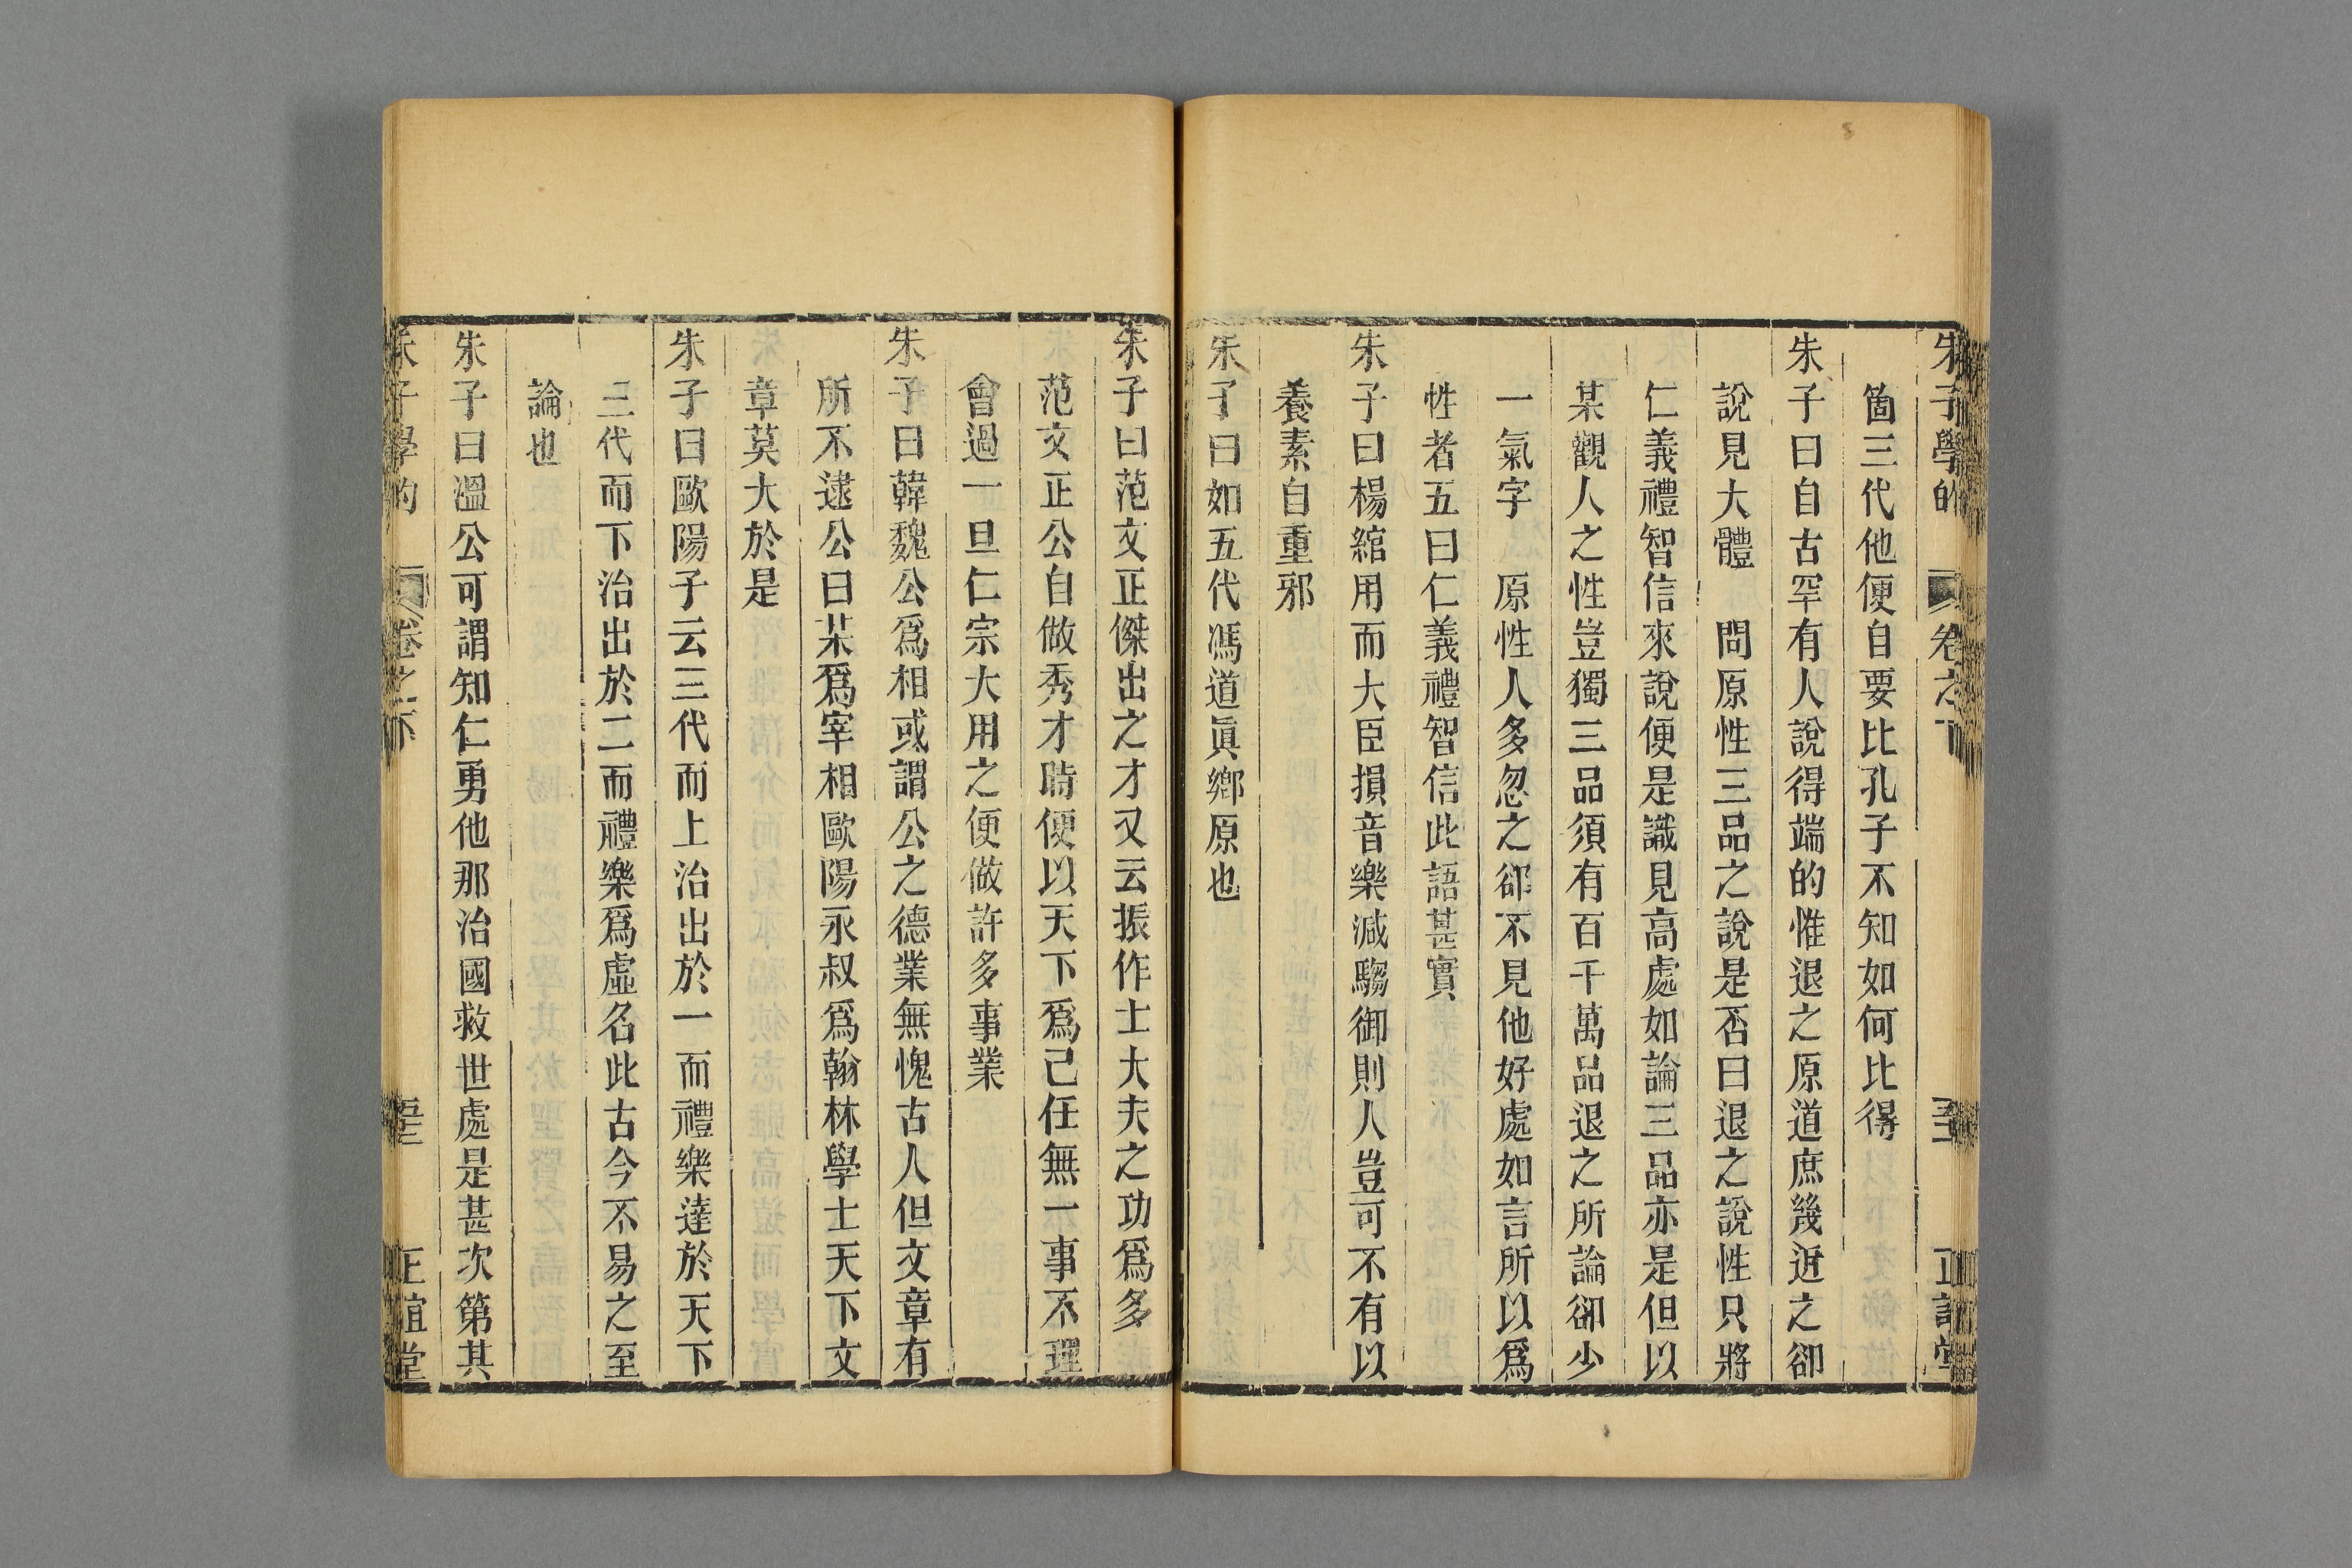 朱子學的 卷之下 正誼堂
箇三代他便自要比孔子不知如何比得
朱子曰自古罕有人說得端的惟退之原道庶幾近之卻
說見大體 問原性三品之說是否曰退之說性只將
仁義禮智信來說便是識見高處如論三品亦是但以
某觀人之性豈獨三品須有百千萬品退之所論卻少
一氣字 原性人多忽之卻不見他好處如言所以爲
性者五曰仁義禮智信此語甚實
朱子曰楊綰用而大臣損音樂減騶御則人豈可不有以
養素自重邪
朱子曰如五代馮道眞鄉原也
朱子曰范文正傑出之才又云振作士大夫之功爲多
范文正公自做秀才時便以天下爲己任無一事不理
會過一旦仁宗大用之便做許多事業
朱子曰韓魏公爲相或謂公之德業無愧古人但文章有
所不逮公曰某爲宰相歐陽永叔爲翰林學士天下文
章莫大於是
朱子曰歐陽子云三代而上治出於一而禮樂達於天下
三代而下治出於二而禮樂爲虛名此古今不易之至
論也
朱子曰溫公可謂知仁勇他那治國救世處是甚次第其
朱子學的 卷之下 正誼堂